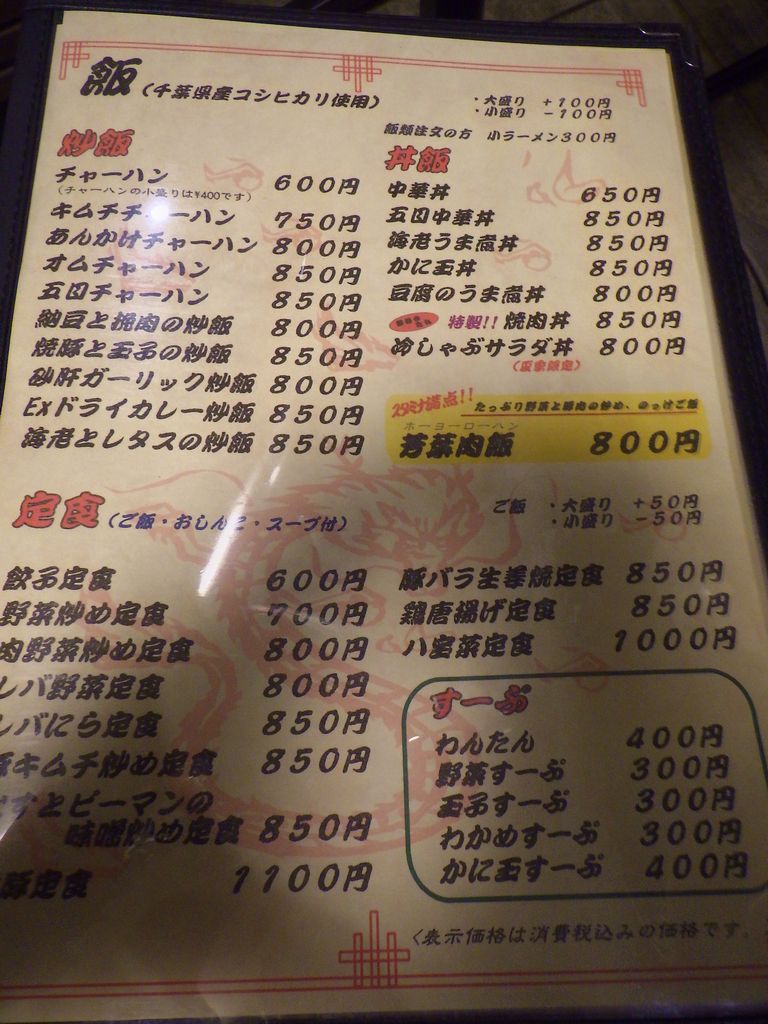 飯(千葉県産コシヒカリ使用)
・大盛り +100円
・小盛り -100円
飯類注文の方 小ラーメン300円
炒飯
チャーハン 600円
(チャーハンの小盛りは¥400です)
キムチチャーハン 750円
あんかけチャーハン 800円
オムチャーハン 850円
五目チャーハン 850円
納豆と挽肉の炒飯 800円
焼豚と玉子の炒飯 850円
砂肝ガーリック炒飯 800円
Exドライカレー炒飯 850円
海老とレタスの炒飯 850円
丼飯
中華丼 650円
五目中華丼 850円
海老うま煮丼 850円
かに玉丼 850円
豆腐のうま煮丼 800円
特製!! 焼肉丼 850円
冷しゃぶサラダ丼 800円
(夏季限定)
スタミナ満点!! たっぷり野菜と豚肉の炒め、のっけご飯
ホーヨーローハン
芳葉肉飯 800円
定食(ご飯・おしんこ・スープ付)
ご飯 ・大盛り +50円
・小盛り -50円
餃子定食 600円
野菜炒め定食 700円
肉野菜炒め定食 800円
レバ野菜定食 800円
レバにら定食 850円
豚キムチ炒め定食 850円
なすとピーマンの
味噌炒め定食 850円
豚定食 1100円
豚バラ生姜焼定食 850円
鶏唐揚げ定食 850円
八宝菜定食 1000円
すーぷ
わんたん 400円
野菜すーぷ 300円
玉子すーぷ 300円
わかめすーぷ 300円
かに玉すーぷ 400円
<表示価格は消費税込みの価格です。